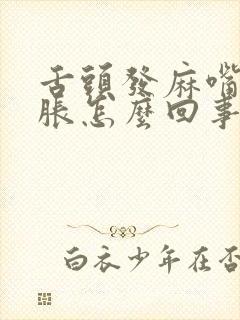 舌頭發麻嘴
脹怎麼回事
白衣少年在否